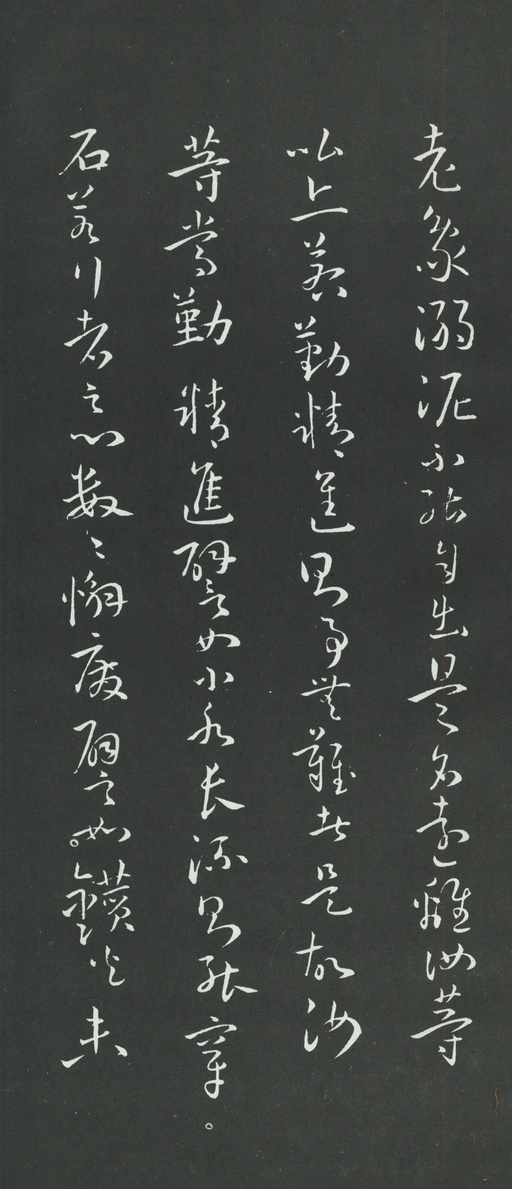 老象溺泥不能自出是名遠離汝等
比丘若勤精進則事無難者是故汝
等當勤精進譬如小水長流則能穿。
石若行者之心數〻懈廢譬如。鑽火未